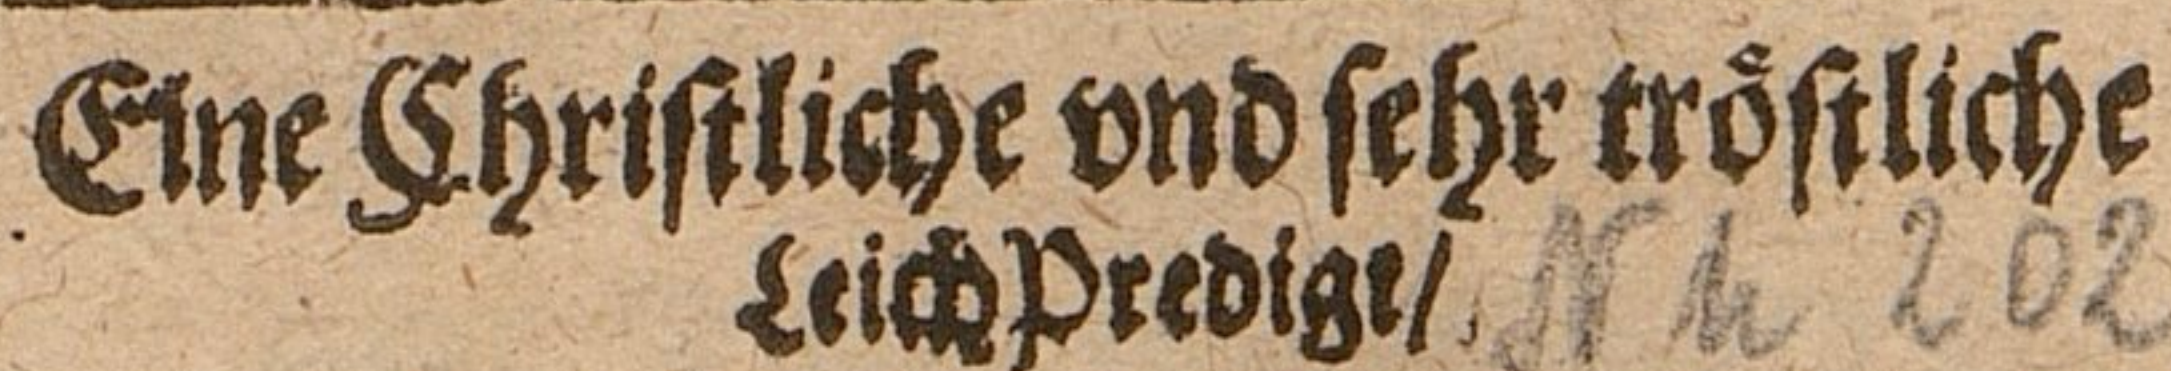 Eine Chriſtliche vnd ſehr troͤſtliche
Leich Predigt/ 202